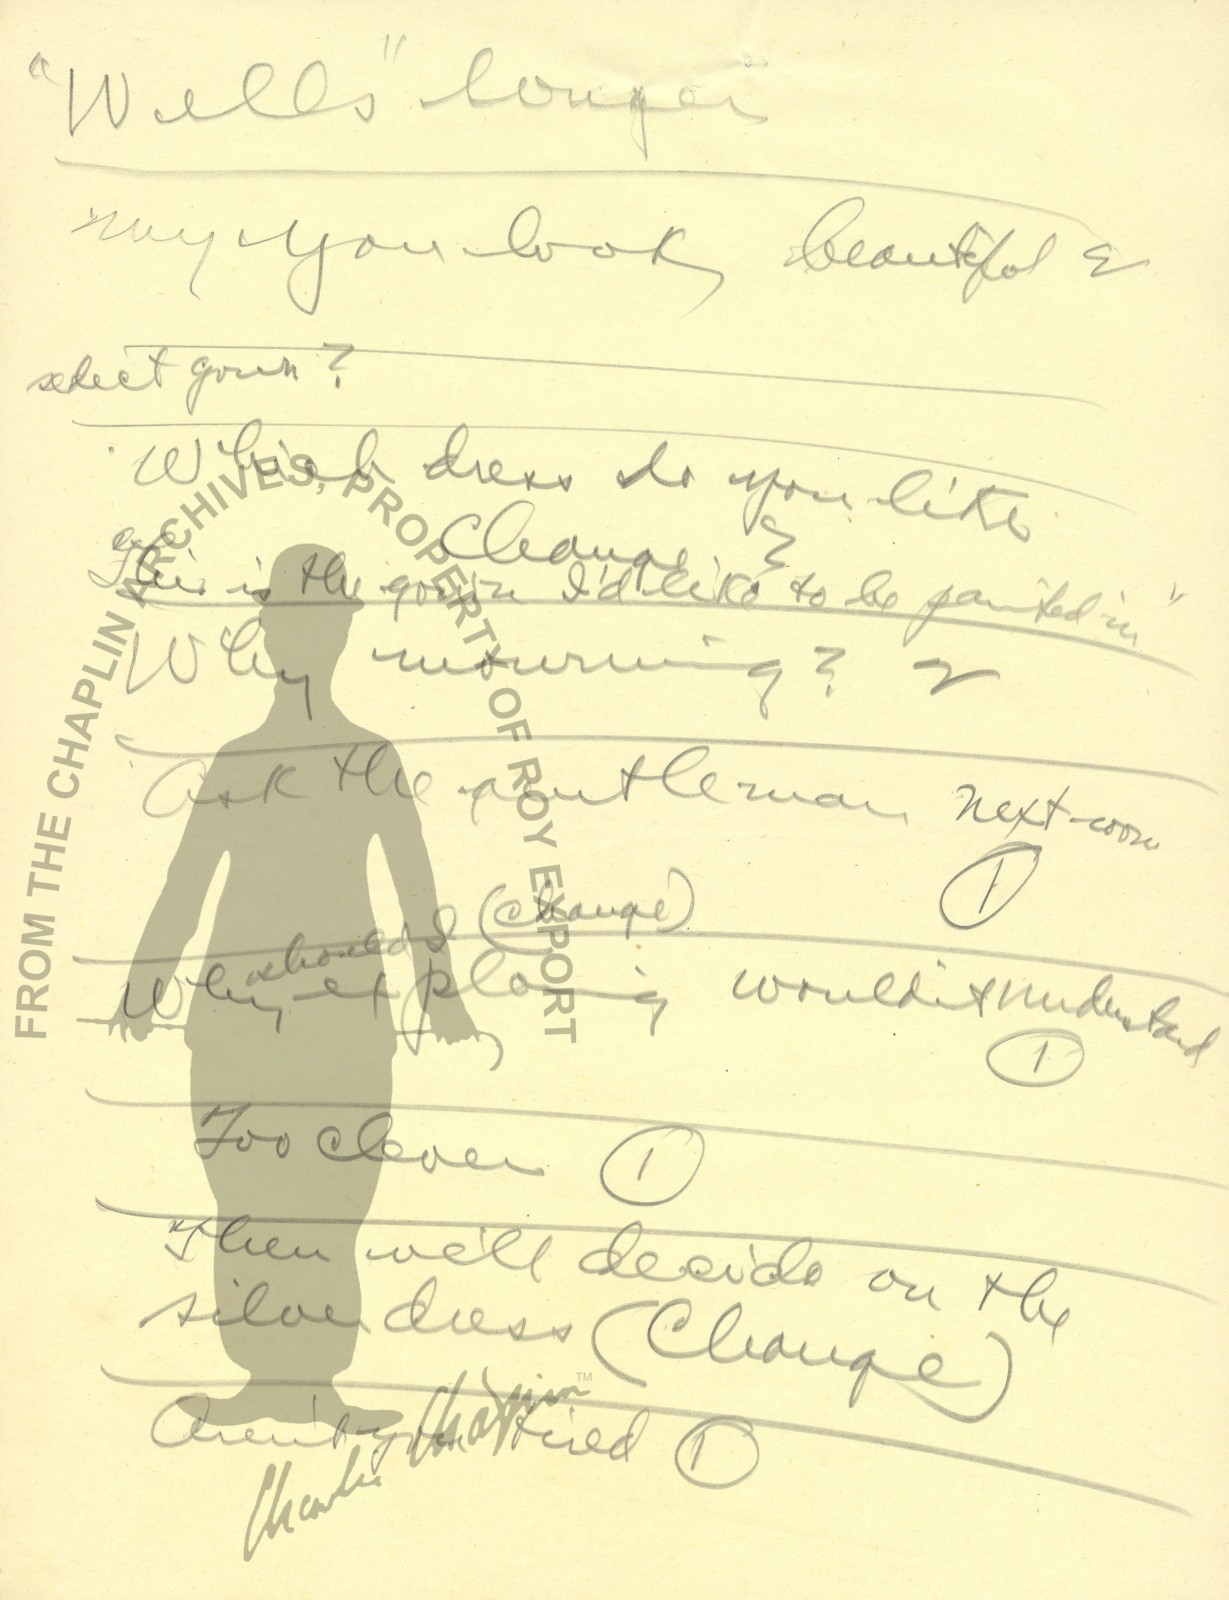 "Wells" longer
my you look beautiful &
select gown?
Which dress do you like
Change ?
This is the gown I'd like to be painted in"
Why mourning? &
Ask the gentleman next room
1
should I (Change)
Why explaing wouldn't understand
1
Too clever 1
Then we'll decide on the
silver dress (Change)
Aren't you tired 1
FROM THE CHAPLIN ARCHIVES, PROPERTY OF ROY EXPORT
Charlie Chaplin™